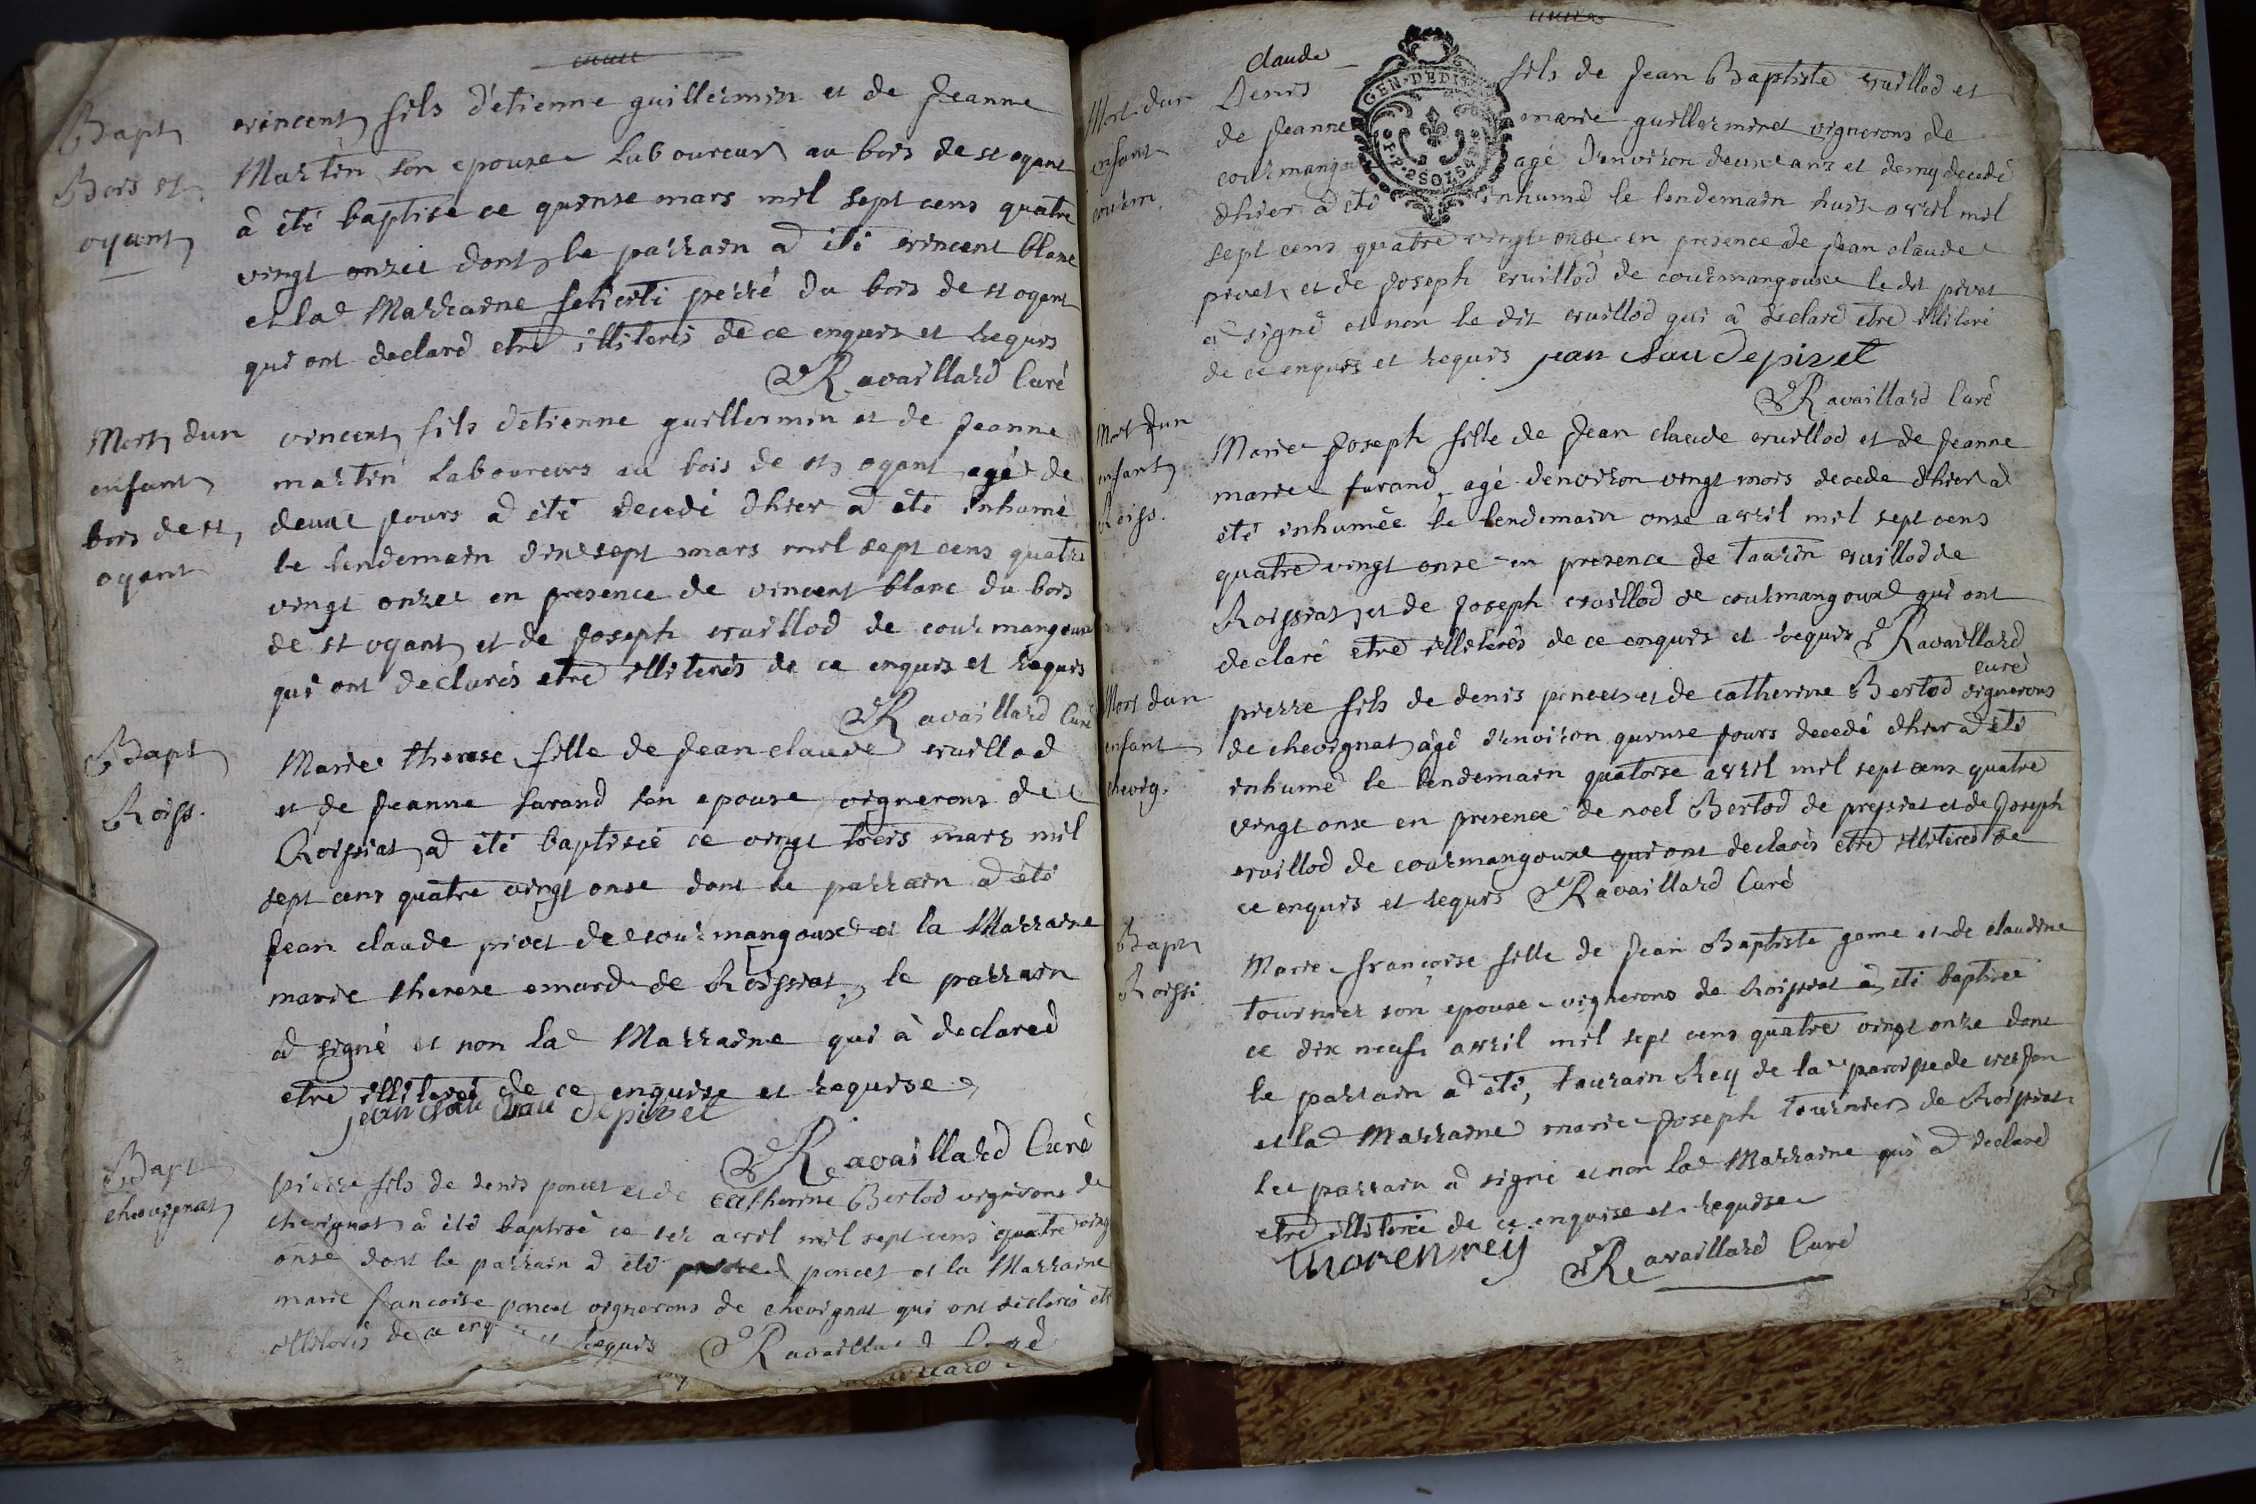 Bapt
Bois st
oyant
vincent fils d'etienne guillermin et de Jeanne
Martin son epouse Laboureurs au bois de st oyant
à été baptise ce quinse mars mil sept cens quatre
vingt onze dont le parrain a été vincent blanc
et la Marraine perré du bois de st oyant
qui ont declaré etre illiterés de ce enquis et requis
Ravaillard Curé
Mort dun
enfant
bois de st
oyant
vincent fils d'etienne guillermin et de Jeanne
martin Laboureurs au bois de st oyant agé de
deux jours a été decedé dhier a été inhumé
le lendemain dix sept mars mil sept cens quatre
vingt onze en presence de vincent blanc du bois
de st oyant et de Joseph vuillod de courmangoux
qui ont declarés etre illiterés de ce enquis et requis
Ravaillard Curé
Bapt
Roiss.
Marie therese fille de Jean claude vuillod
et de Jeanne Farand son epouse vignerons de
Roissiat a été baptisée ce vingt trois mars mil
sept cens quatre vingt onse dont le parrain a été
Jean claude pivet de courmangoux et la Marraine
marie therese emard de Roissiat, le parrain
a signé et non la Marraine qui à declaré
etre illiteré de ce enquise et requise
jean clau clau depivet
Ravaillard Curé
Bapt
chevignat
pierre fils de denis poncet et de catherine Bertod vignerons de
chevignat à été baptisé ce 1er avril mil sept cens quatre vingt
onse dont le parrain a été pierre poncet et la Marraine
marie francoise poncet vignerons de chevignat qui ont declarés etre
illiterés de ce enq et requis Ravaillard Curé
Mort dun
enfant
courm.
claude
Denis fils de Jean Baptiste vuillod et
de Jeanne marie guillerminet vignerons de
courmangoux agé d'environ deux ans et demy decedé
dhier a été inhumé le lendemain huit avril mil
sept cens quatre vingt onse en presence de Jean claude
pivet et de Joseph vuillod de courmangoux le dit pivet
a signé et non le dit vuillod qui à declaré etre illiteré
de ce enquis et requis jean clau depivet
Ravaillard Curé
GEN. DE DIJON
2. SOLS
Mort dun
enfant
Roiss.
Marie Joseph fille de Jean claude vuillod et de Jeanne
marie farand, agé denviron vingt mois decede dhier a
été inhumée le lendemain onse avril mil sept cens
quatre vingt onse en presence de taurin vuillod de
Roissiat et de Joseph vuillod de courmangoux qui ont
declaré etre illiterés de ce enquis et requis Ravaillard
curé
Mort dun
enfant
chevig.
pierre fils de denis poncet et de catherine Bertod vignerons
de chevignat âgé denviron quinse jours decedé dhier a été
inhumé le lendemain quatorse avril mil sept cens quatre
vingt onse en presence de noel Bertod de pressiat et de Joseph
vuillod de courmangoux qui ont declarés etre illiterés de
ce enquis et requis Ravaillard Curé
Bapt
Roissi
Marie françoise fille de Jean Baptiste gome et de claudine
tournier son epouse vignerons de Roissiat à été baptisée
ce dix neuf avril mil sept cens quatre vingt onze dont
le parrain a été, taurain Rey de la paroisse de
et la Marraine marie Joseph tournier de Roissiat
le parrain a signé et non la Marraine qui a declaré
etre illiterée de ce enquise et requise
thorenrey
Ravaillard Curé